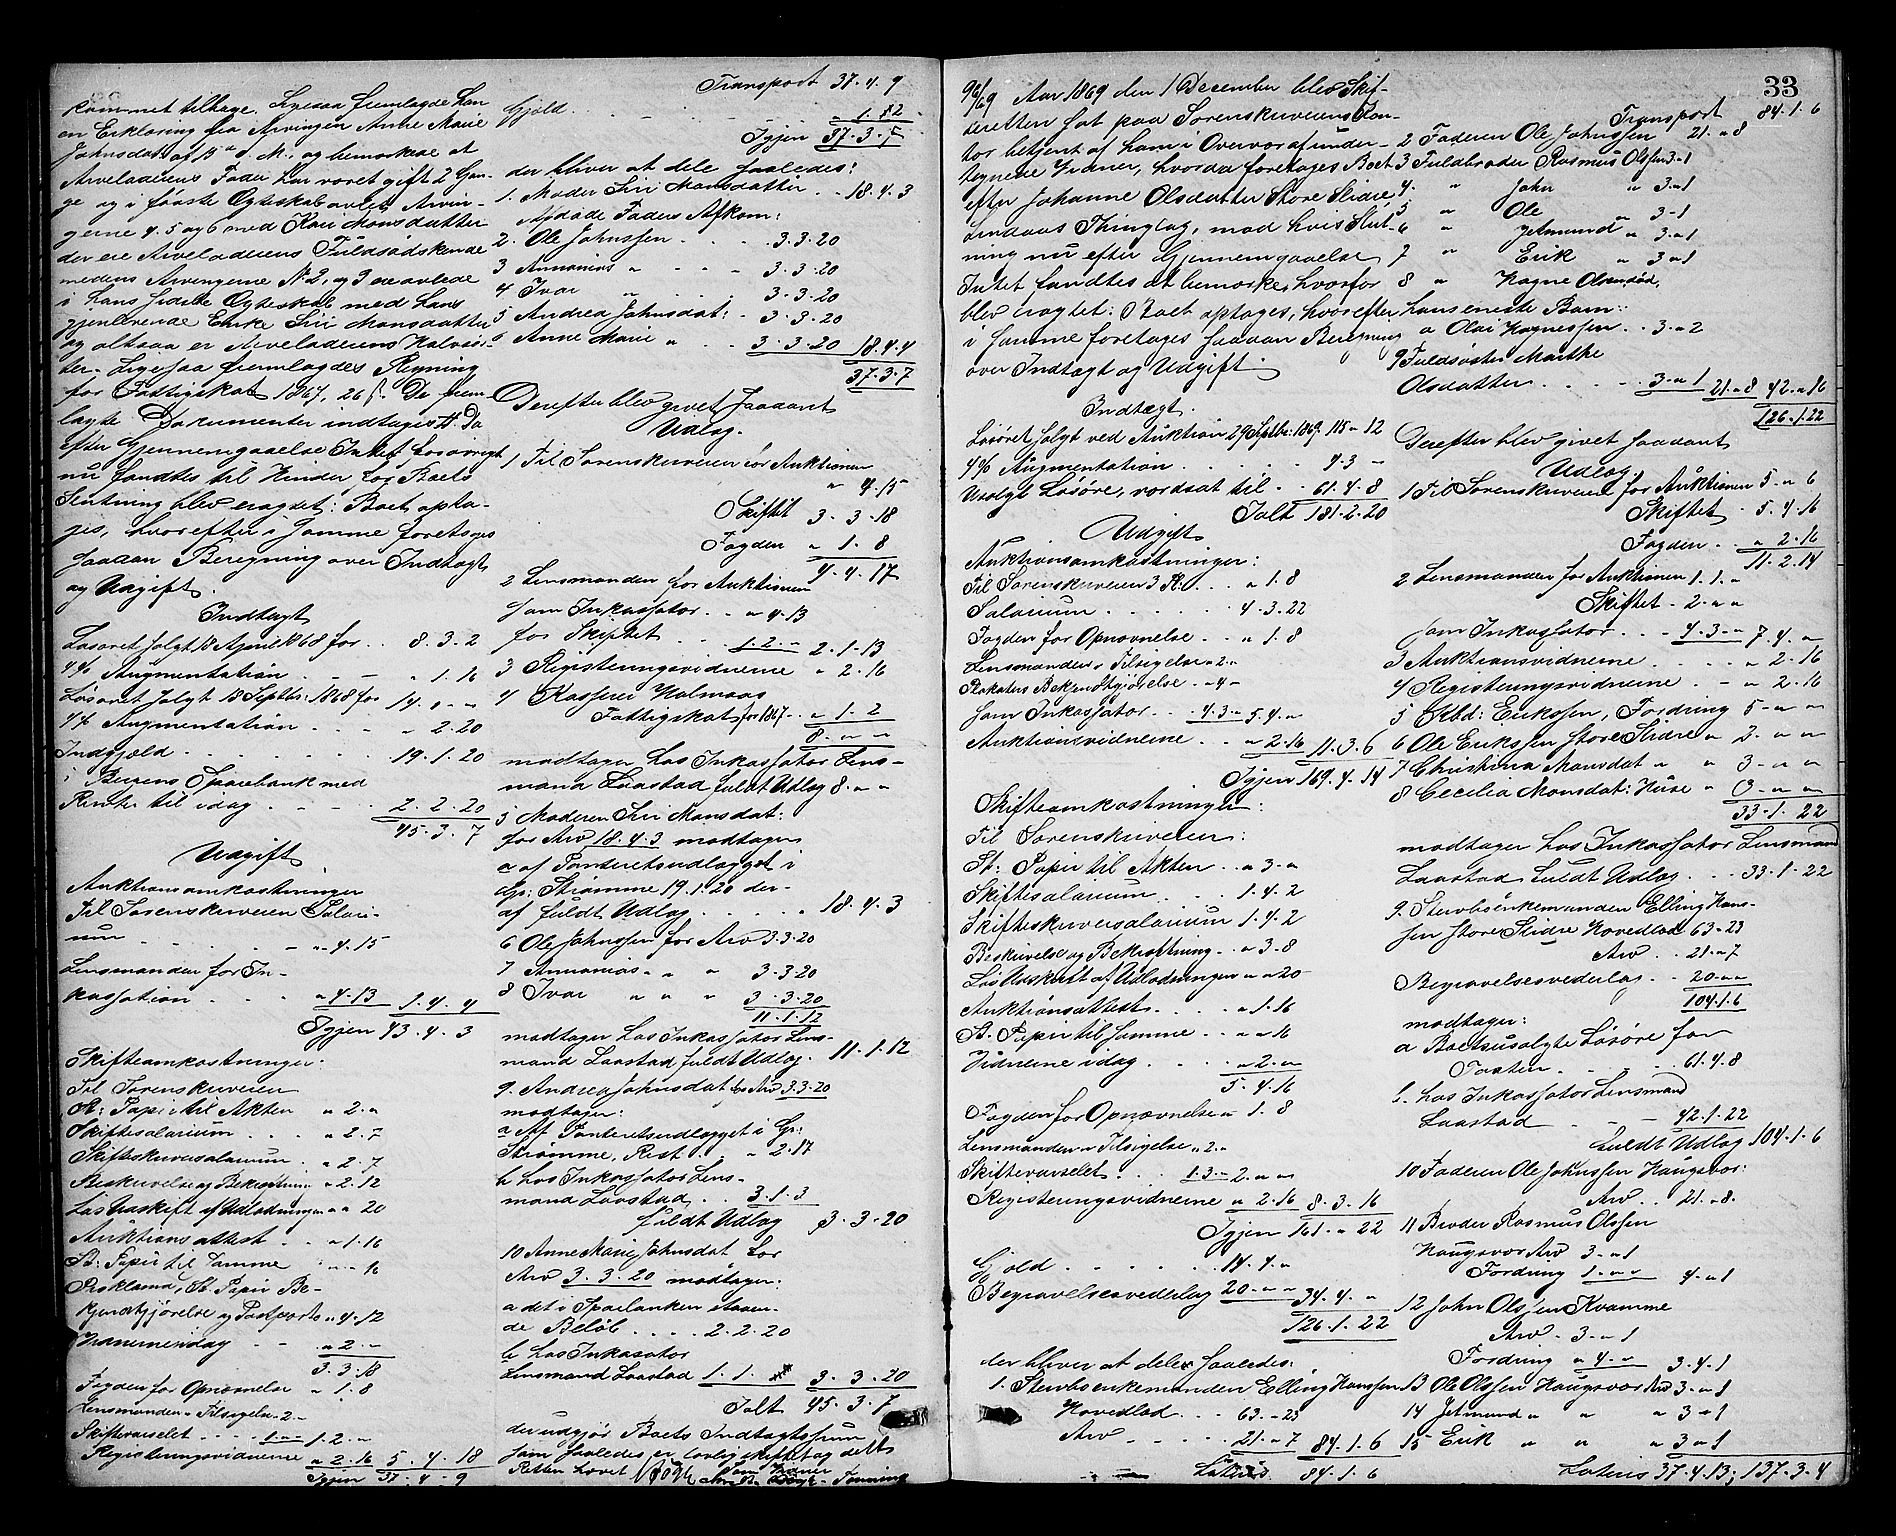 kommet tilbage. Ligesaa fremlagde han
en Erklæring fra Arvingen Anne Marie
Johnsdat: af 15de d. M., og bemærkede at
Arveladerens Fader har været gift 2 Gan-
ge og i første Ægteskab avlet Arvin-
gerne 4. 5 og 6 med Kari Monsdatter
der ere Arveladerens Fuldsødskende
medens Arvingerne No 2, og 3 ere avlede
i hans sidste Ægteskab med hans
gjenlevende Enke Siri Monsdatter
og altsaa er Arveladerens Halvsøs-
ter. Ligesaa fremlagdes Regning
for Fattigskat 1867, 26 s. De frem-
lagte Dokumenter indtages. Da
efter Gjennemgaaelse Intet forøvrigt
nu fandtes til Hinder for Boets
Slutning blev eragtet: Boet opta-
ges, hvorefter i samme foretages
saadan Beregning over Indtægt
og Udgift.
Indtægt
Løsøret solgt 18 April 1868 for . . 8. 3. 2
4% Augmentation . . . " 1. 16
Løsøret solgt 18 Septbr: 1868 for 14. " - "
4% Augmentation . . . " 2. 20
Indgjæld . . . . . 19. 1. 20
i Bergens Sparebank med
Rente til idag . . . . 2. 2. 20
45. 3. 7
Udgift
Auktionsomkostninger
Til Sorenskriveren Salari-
um . . . . . - " 4. 15
Lensmanden for In-
kassation . . . " 4. 13 1. 4. 4
Igjen 43. 4. 3
Skifteomkostninger:
Til Sorenskriveren
St: Papir til Akten " 2. "
Skiftesalarium . . . " 2. 7
Skifteskriversalarium . " 2. 7
Beskrivelse og Bekræftning " 2. 12
Løs Udskrift af Udlodningen " " 20
Auktionsattest . . " 1. 16
St: Papir til Samme " " 16
Proklama, St. Papir Be-
kjendtgjørelse og Postporto " 4. 12
Vidnerne idag - - " 2 - "
3. 3. 18
Fogden for Opnævnelse " 1. 8
Lensmanden " Tilsigelse " 2 - "
Skiftevarselet . . . 1 - " - " 1. 2. "
Registreringsvidnerne " 2. 16 5. 4. 18
Igjen 37. 4. 9
Transport 37. 4. 9
Gjæld . . . . . " 1. 2
Igjen 37. 3. 7
der bliver at dele saaledes:
1. Moder Siri Monsdatter . . 18. 4. 3
Afdøde Faders Afkom:
2. Ole Johnssen . . . 3. 3. 20
3 Annanias " . . " 3. 3. 20
4 Ivar " . . . 3. 3. 20
5 Andrea Johnsdat: . 3. 3. 20
6 Anne Marie " . . 3. 3. 20 18. 4. 4
37. 3. 7
Derefter blev givet saadant
Udlæg.
1 Til Sorenskriveren for Auktionen
" 4. 15
Skiftet 3. 3. 18
Fogden " 1. 8
4. 4. 17
2 Lensmanden for Auktionen
som Inkassator . . " 4. 13
for Skiftet . . 1. 2. - 2. 1. 13
3 Registreringsvidnerne " 2. 16
4 Kasserer Holmaas
Fattigskat for 1867 . . " 1. 2
8. " - "
modtager hos Inkassator Lens-
mand Laastad fuldt Udlæg 8. " "
5 Moderen Siri Monsdat:
for Arv 18. 4. 3 modtager
a af Panteretsudlægget i
Gr: Strømme 19. 1. 20 der-
af fuldt Udlæg . . . . . 18. 4. 3
6 Ole Johnssen for Arv 3. 3. 20
7 Annanias - " " 3. 3. 20
8 Ivar " " " 3. 3. 20
11. 1. 12
modtager hos Inkassator Lens-
mand Laastad fuldt Udlæg . 11. 1. 12
9. Andrea Johnsdat for Arv 3. 3. 20
modtager:
a Af Panteretsudlægget i Gr:
Strømme, Rest . . " 2. 17
b hos Inkassator Lens-
mand Laastad . . 3. 1. 3
fuldt Udlæg 3. 3. 20
10 Anne Marie Johnsdat for
Arv 3. 3. 20 modtager:
a det i Sparbanken staaen-
de Beløb . . . . 2. 2. 20
b hos Inkassator
Lensmand Laastad 1. 1. " 3. 3. 20
Ialt 45. 3. 7
der udgjør Boets Indtægtssum
som saaledes er lovlig skiftet og delt.
Retten hævet
33
96/69 Aar 1869 den 1 December blev Skif-
teretten sat paa Sorenskriverens Kon-
tor betjent af ham i Overvær af under-
tegnede Vidner, hvorda foretages Boet
efter Johanne Olsdatter Store Slidre,
Lindaas Thinglag, mod hvis Slut-
ning nu efter Gjennemgaaelse
Intet fandtes at bemærke, hvorfor
blev eragtet: Boet optages, hvorefter
i samme foretages saadan Beregning
over Indtægt og Udgift
Indtægt.
Løsøret solgt ved Auktion 29 Septbr: 1869. 115 " 12
4% Augmentation . . . . . 4. 3 -
Usolgt Løsøre, vordsat til . . 61. 4. 8
Ialt 181. 2. 20
Udgift
Auktionsomkostninger:
Til Sorenskriveren 3 Kl. . . " 1. 8
Salarium . . . . . 4. 3. 22
Fogden for Opnævnelse . . " 1. 8
Lensmanden " Tilsigelse " 2. "
Plakaters Bekjendtgjørelse . " 4 -
som Inkassator . . 4. 3 - " 5. 4. "
Auktionsvidnerne . . " 2. 16 11. 3. 6
Igjen 169. 4. 14
Skifteomkostninger:
Til Sorenskriveren:
St: Papir til Akten . . " 3 - "
Skiftesalarium . . . 1. 4. 2
Skifteskriversalarium 1. 4. 2
Beskrivelse og Bekræftning . " 3 - 8
Løs Udskrift af Udlodningen " " 20
Auktionsattest . . . . " 1. 16
St. Papir til Samme . . " " 16
Vidnerne idag . . . " 2 - "
5. 4. 16
Fogden for Opnævnelse " 1. 8
Lensmanden " Tilsigelse " 2. "
Skiftevarselet . . . 1. 3 - 2. " "
Registreringsvidnerne " 2. 16 8. 3. 16
Igjen 161 - " 22
Gjæld . . . . . 14. 4. "
Begravelsesvederlag 20 - " " 34. 4. "
126. 1. 22
der bliver at dele saaledes:
1. Stervboenkemanden Elling Hanssen
Hovedlod . . . 63. " 23
Arv . . . . 21. " 7 84. 1. 6
Lateris 84. 1. 6
Transport 84. 1. 6
2 Faderen Ole Johnssen 21. " 8
3 Fuldbroder Rasmus Olssen 3 " 1
4. " John " 3 " 1
5 " Ole " 3 - 1
6 " Jetmund " " 3 " 1
7 " Erik " 3 " 1
8 " Hagne Olsen død,
hans eneste Barn:
a Olai Hagnessen . . 3 - " 2
9 Fuldsøster Marthe
Olsdatter . . . . 3 - " 1 21. " 8 42. " 16
126. 1. 22
Derefter blev givet saadant
Udlæg.
1 Til Sorenskriveren for Auktionen 5 - " 6
Skiftet . 5. 4. 16
Fogden . . " 2. 16
11. 2. 14
2 Lensmanden for Auktionen 1. 1. "
Skiftet . 2. " "
som Inkassator . . . 4. 3 - " 7. 4. "
3 Auktionsvidnerne . . . . " 2. 16
4 Registreringsvidnerne . - " 2. 16
5 Erikssen, Fordring 5 - " "
6 Ole Erikssen Store Slidre " 2. " "
7 Christina Monsdat " " 3 - " "
8 Cecilia Monsdat: Huse " 0 - " "
33 - 1. 22
modtager hos Inkassator Lensmand
Laastad fuldt Udlæg . . . 33. 1. 22
9. Stervboenkemanden Elling Hans-
sen Store Slidre Hovedlod 63 - 23
Arv . . 21. " 7
Begravelsesvederlag . . 20 - " "
104. 1. 6
modtager:
a Boets usolgte Løsøre for
Taxten . . . . . 61. 4. 8
b. hos Inkassator Lensmand
Laastad . . - 42. 1. 22
fuldt Udlæg 104. 1. 6
10 Faderen Ole Johnssen Haugsvær:
Arv . . 21. " 8.
11 Broder Rasmus Olssen
Haugsvær Arv 3 - " 1
Fordring 1 - " - " 4. " 1
12 John Olssen Kvamme
Arv . 3 - " 1
Fordring " 4 - " 3. 4. 1
13 Ole Olssen Haugsvær Arv 3 - " 1
14 Jetmund " " " 3 - " 1
15 Erik " " " 3 " 1
Lateris 37. 4. 13; 137. 3. 4